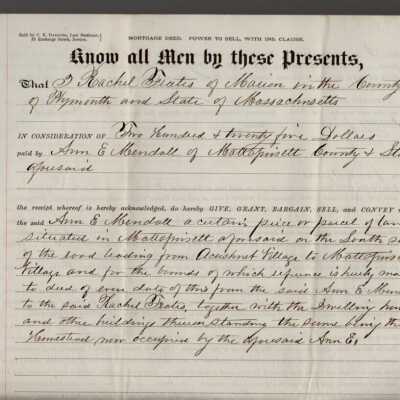 Sold by C. K. Darling, Law Stationer,
MORTGAGE DEED. POWER TO SELL, WITH INS. CLAUSE.
Exchange Street, Boston.
Know all Men by these Presents,
That I Rachel Frates of Marion in the County
of Plymouth and State of Massachusetts
IN CONSIDERATION OF Two Hundred & twenty five Dollars
paid by Ann E Mendall of Mattopisett County &
aforesaid
the receipt whereof is hereby acknowledged, do hereby GIVE, GRANT, BARGAIN, SELL, AND CONVEY
the said Ann E Mendall a certain piece or parcel of
situated in Mattopisett aforesaid on the South
of the road leading from Acushnet Village to
Village and for the bounds of which refrence is hereby
to deed of even date of this from the said Ann E
to the said Rachel Frates, together with the Dwelling
and other building thereon standing the same being
Homestead now occupied by the aforesaid Ann E,